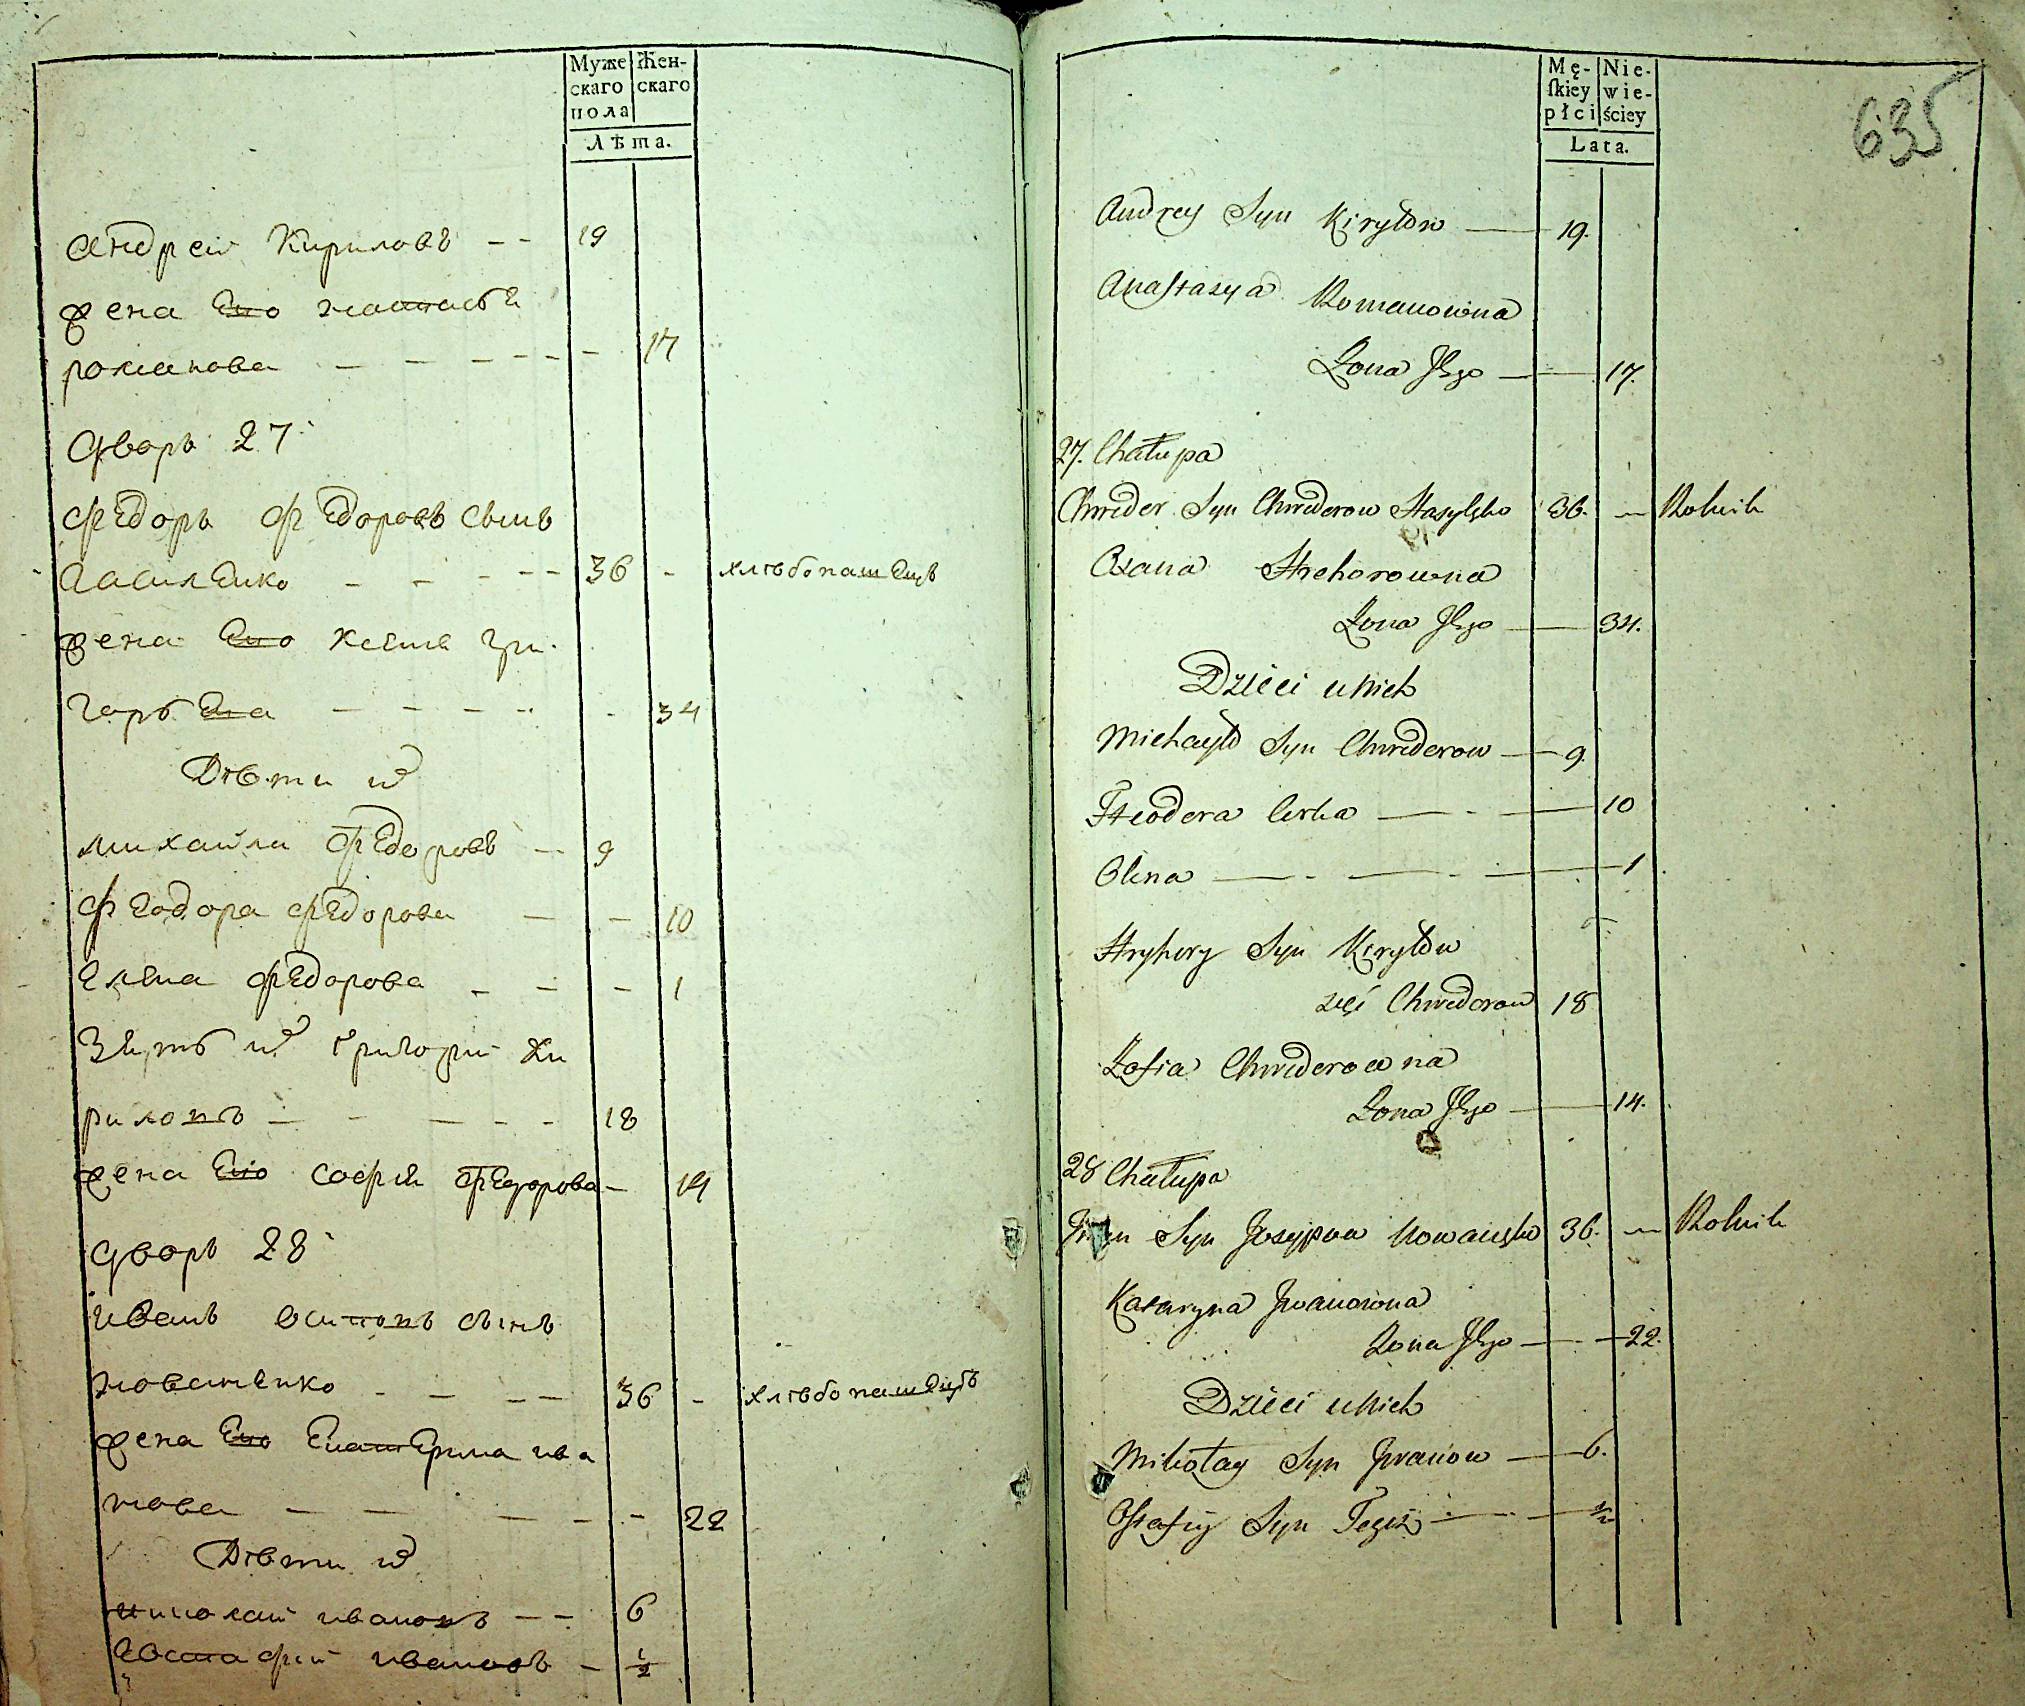 Муже Жен-
скаго скаго
пола
Лѣта.
Андрей Кириловъ — — 19
жена Его настасья
романова — — — — — — 17
Дворъ 27й
Федоръ Федоровъ сынъ
василенко — — — — — 36 - хлѣбопашецъ
жена Его ксения Гри-
горьева — — — — - 34
Дѣти их
михайла Федоровъ — 9
Феодора Федорова — — 10
Елена Федорова — — — 1
Зять их Григорий Ки
риловъ — — — — — 18
жена Его София Федорова — 14
Дворъ 28й
иванъ осиповъ сынъ
нованенко — — — — 36 - хлѣбопашецъ
жена Его Екатерина ива
нова — — — — — 22
Дѣти их
николай ивановъ — — 6
Евстафий ивановъ — ½
Mę- Nie-
ſkiey wie-
płci ściey
Lata.
635
Andrey Syn Kiryłow — 19.
Anastazya Romanowna
Żona Jego — 17.
27. Chałupa
Chweder Syn Chwederow Wasylęko 36. — Rolnik
Oxana Hrehorowna
Żona Jego — 34.
Dzieci u Nich
Michayło Syn Chwederow — 9.
Teodora Corka — - — 10
Olena — - — - — 1
Hryhory Syn Kiryłow
zięć Chwederow 18
Zofia Chwederowna
Żona Jego — 14.
28 Chałupa
Iwan Syn Jozypow Nowanęko 36. — Rolnik
Katarzyna Jwanowna
Żona Jego — 22.
Dzieci u Nich
Mikołay Syn Jwanow — 6.
Ostafiy Syn Tegoż — - — ½